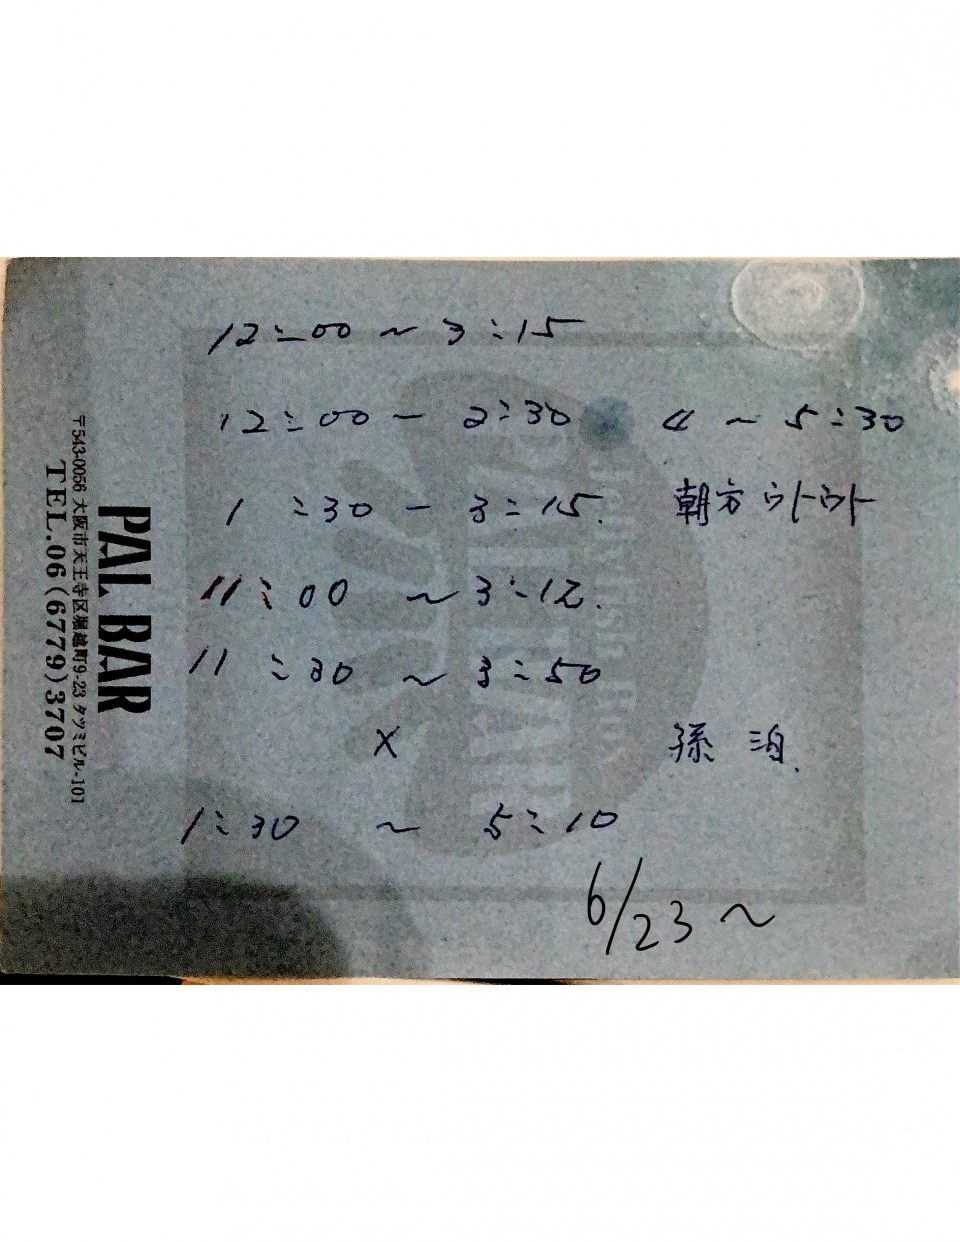 12:00 ~ 3:15
12:00 - 2:30 4 ~ 5:30
1:30 - 3:15. 朝方ウトウト
11:00 ~ 3:12.
11:30 ~ 3:50
× 孫 泊.
1:30 ~ 5:10
6/23 ~
PAL BAR
〒543-0056 大阪市天王寺区堀越町9-23 タツミビル-101
TEL.06(6779)3707
PAL BAR